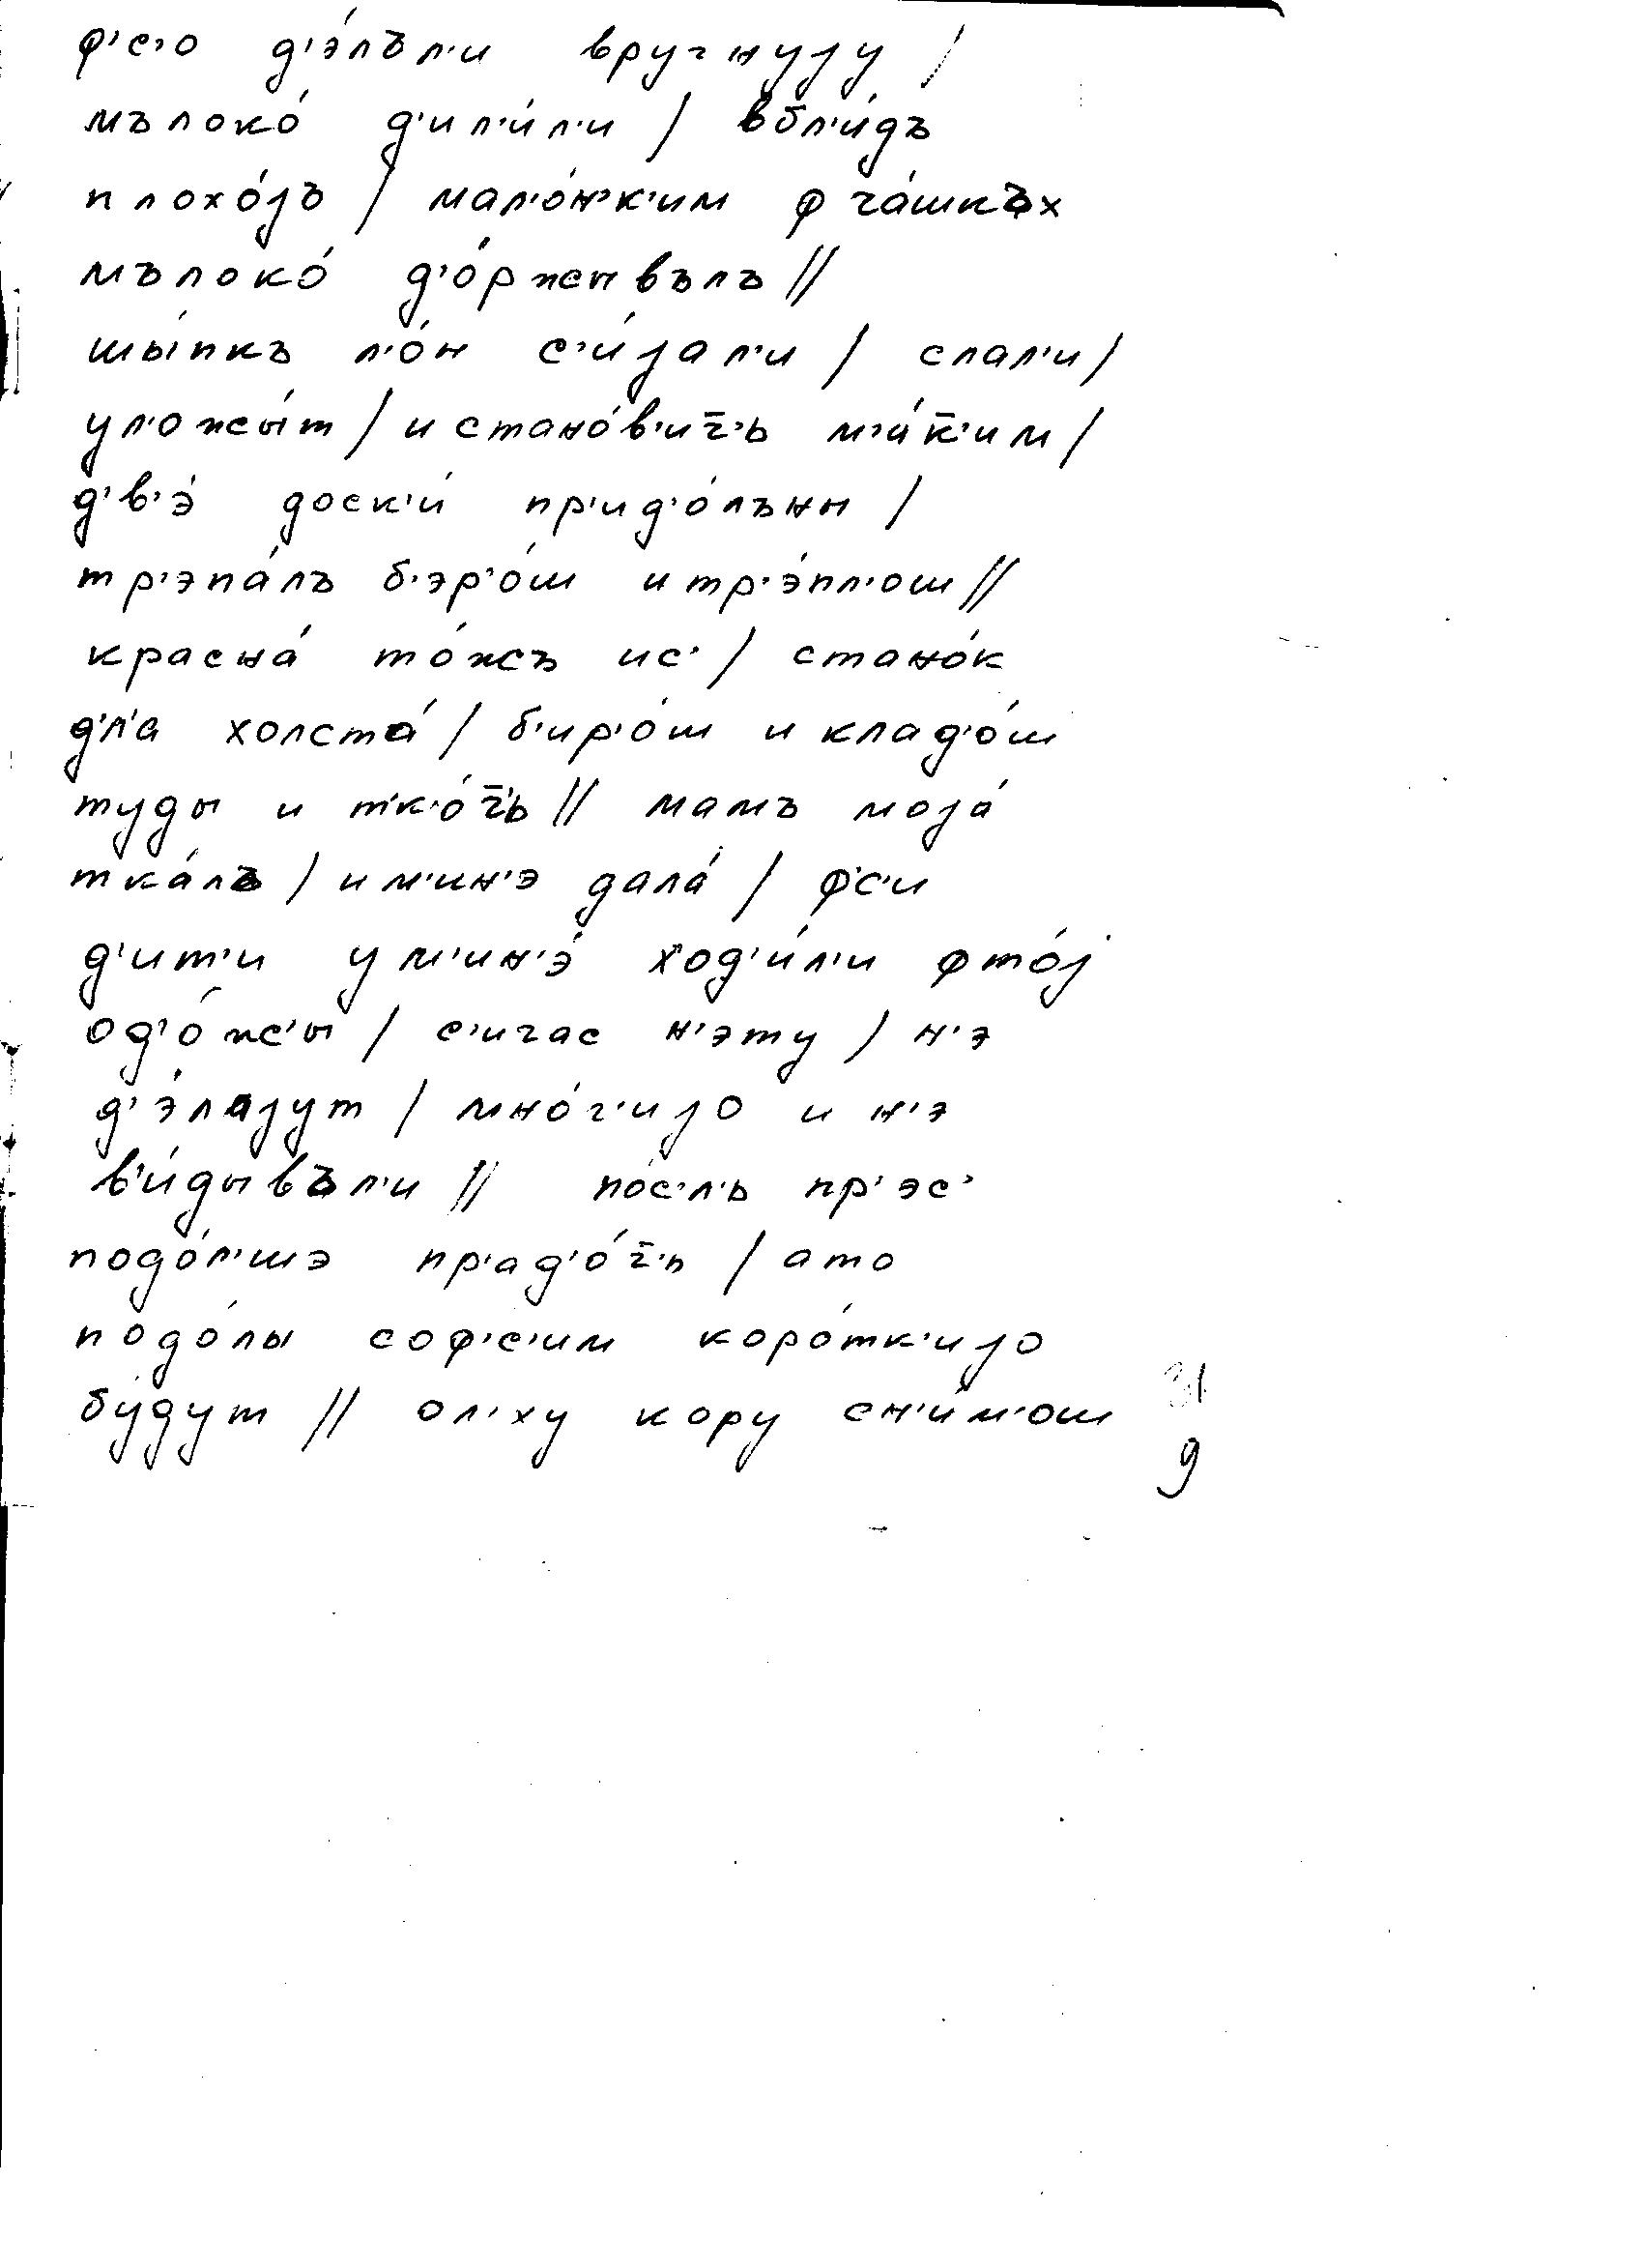 ф'с'о д'э́лъл'и вručнуjу /
мълоко́ д'ил'и́л'и / вбл'и́дъ
плохо́jъ / мал'о́н'к'им ф ча́шкъх
мълоко́ д'о́ржывълъ //
шы́пкъ л'о́н с'и́jал'и / слал'и /
ул'ожы́т / и стано́в'ич̅'ь м'а́к̅'им /
д'в'э́ доск'и́ пр'ид'о́лъны /
тр'эпа́лъ б'эр'о́ш и тр'э́пл'ош //
красна́ то́жъ ис' / стано́к
д'л'а холста́ / б'ир'о́ш и клад'о́ш
туды и т'к'о́ч̅'ь // мамъ моjа́
тка́лъ / и м'ин'э дала́ / ф'с'и
д'ит'и у м'ин'э́ ход'и́л'и фто́j
од'о́ж'ы / с'ичас н'эту / н'э
д'э́лаjут / мно́г'иjо и н'э
в'и́дывъл'и // по́с'л'ь пр'эс'
подо́л'шэ пр'ад'о́ч̅'ь / ато
подо́лы соф'с'им коро́тк'иjо
бу́дут // ол'ху кору сн'и́м'ош
31
9